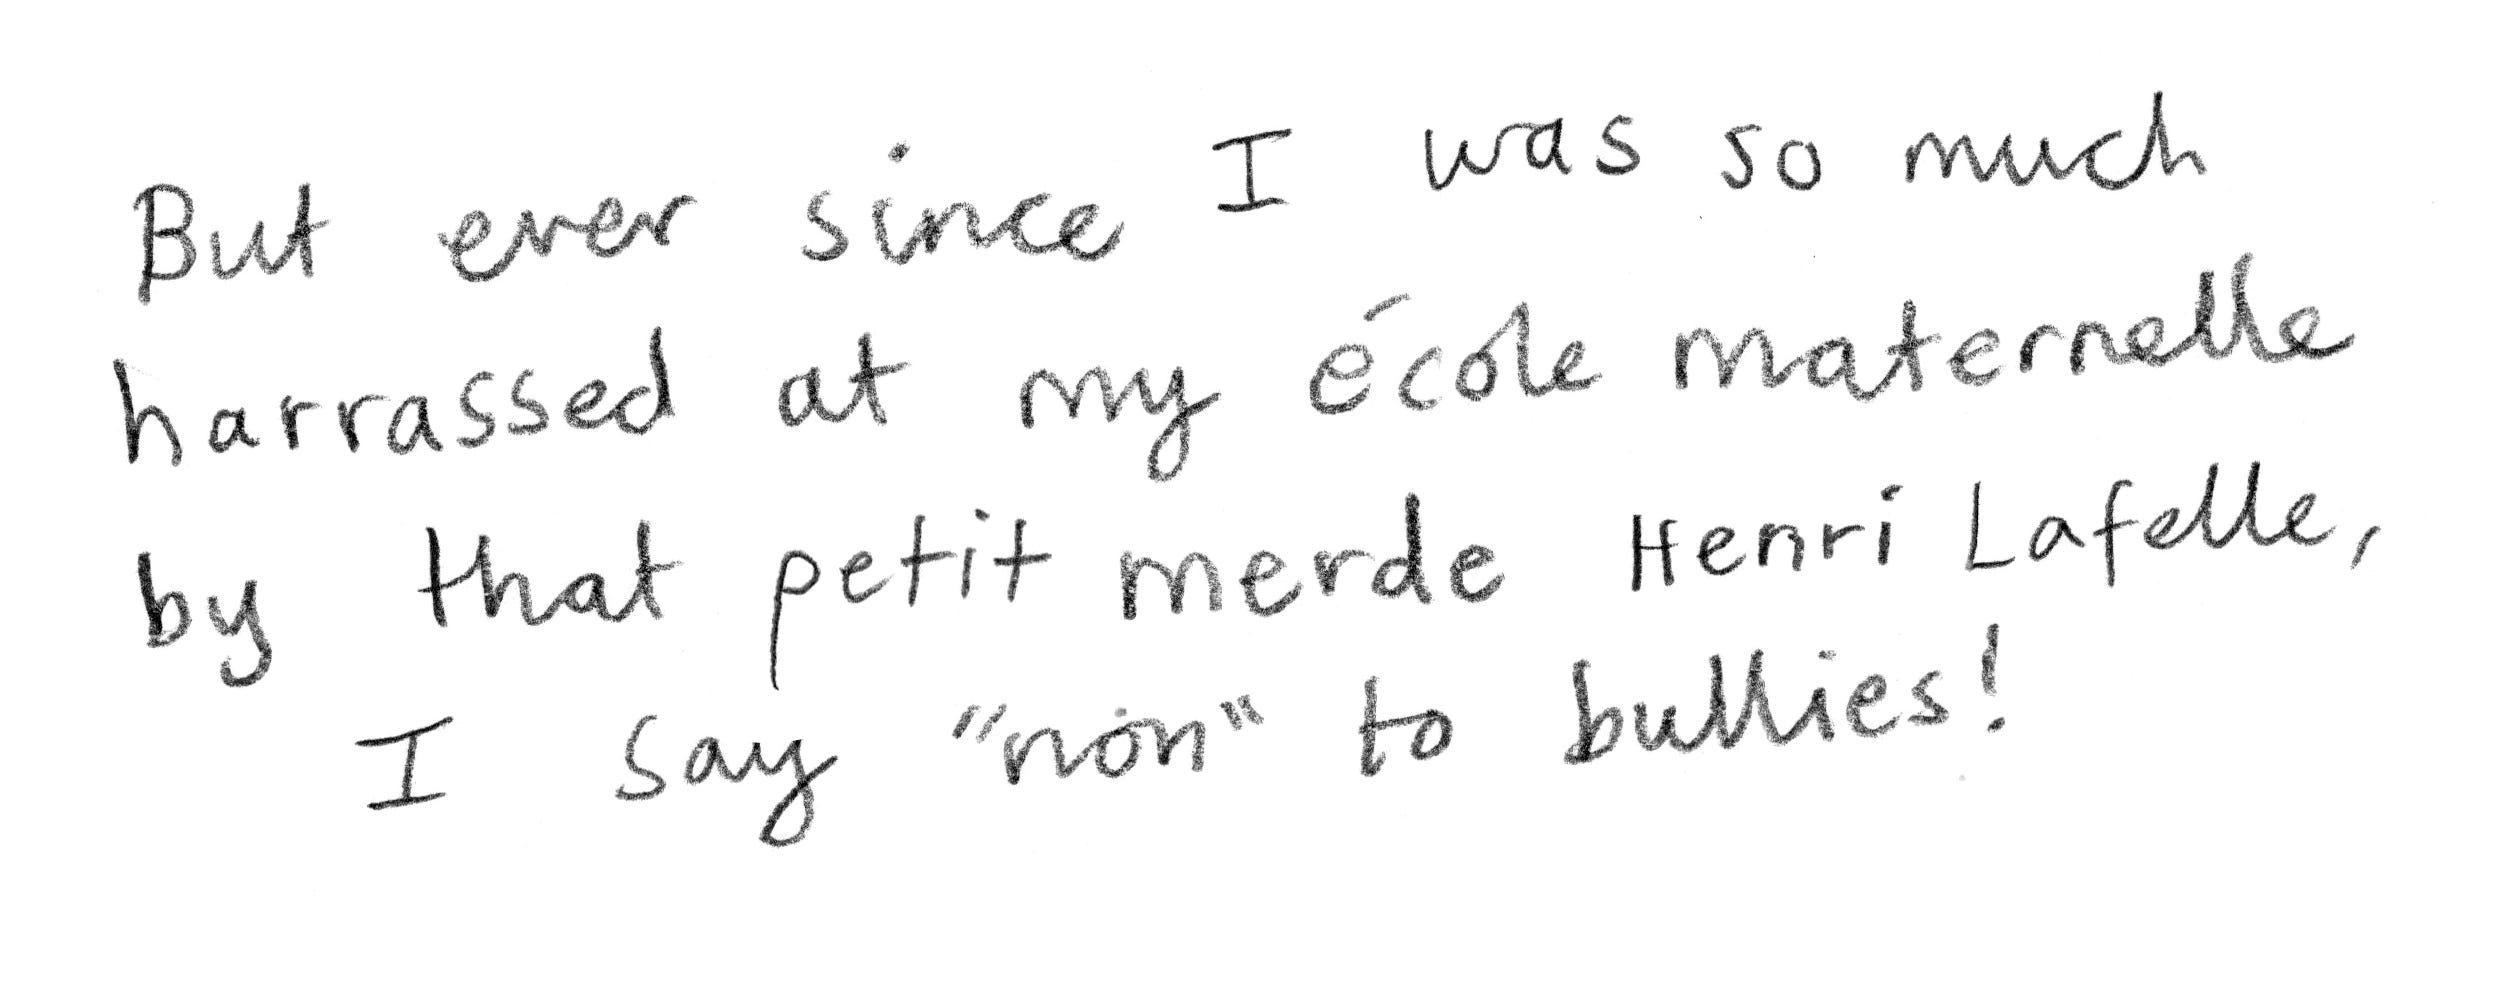 But ever since I was so much
harrassed at my école maternelle
by that petit merde Henri Lafelle,
I say "non" to bullies!